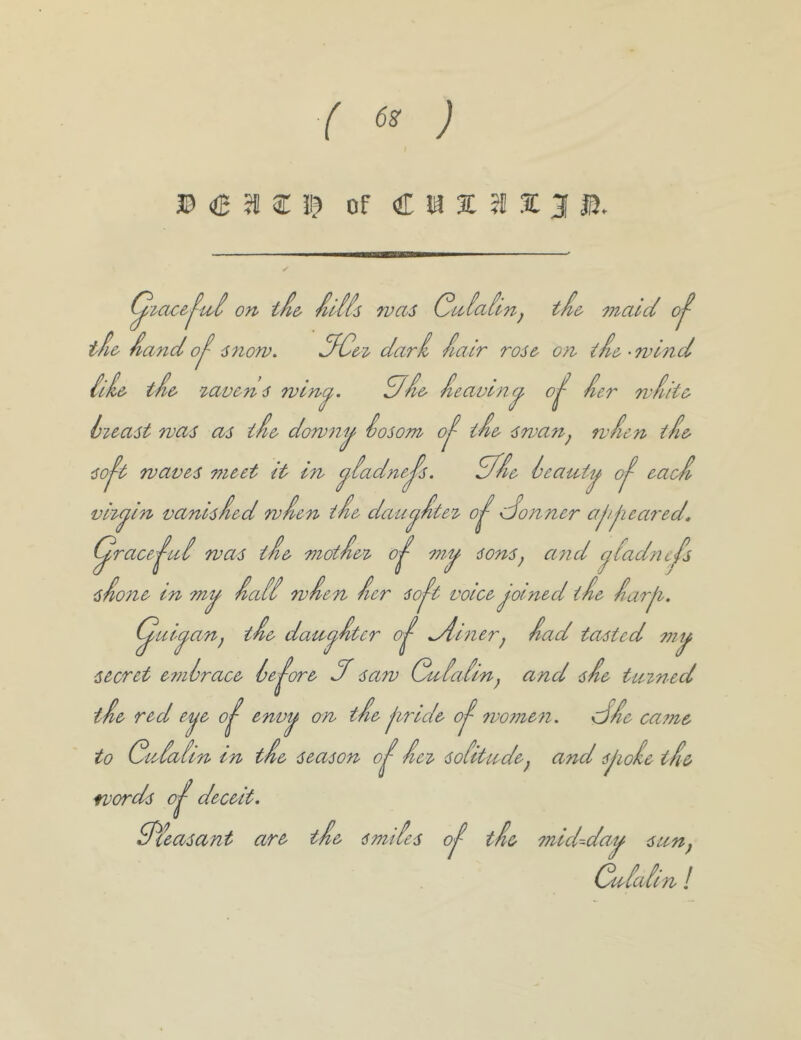 ( 68 )
DEATH of CULALIN.
Graceful on the hills was Culalin, the maid of
the hand of snow. Her dark hair rose on the wind
like the raven's wing. The heaving of her white
breast was as the downy bosom of the swan, when the
soft waves meet it in gladneſs. The beauty of each
virgin vanished when the daughter of Sonner appeared.
Graceful was the mother of my sons, and gladneſs
shone in my hall when her soft voice joined the harp.
Guigan, the daughter of Ainer, had tasted my
secret embrace before I saw Culalin, and she turned
the red eye of envy on the pride of women. She came
to Culalin in the season of her solitude, and spoke the
words of deceit.
Pleasant are the smiles of the mid-day sun,
Culalin !